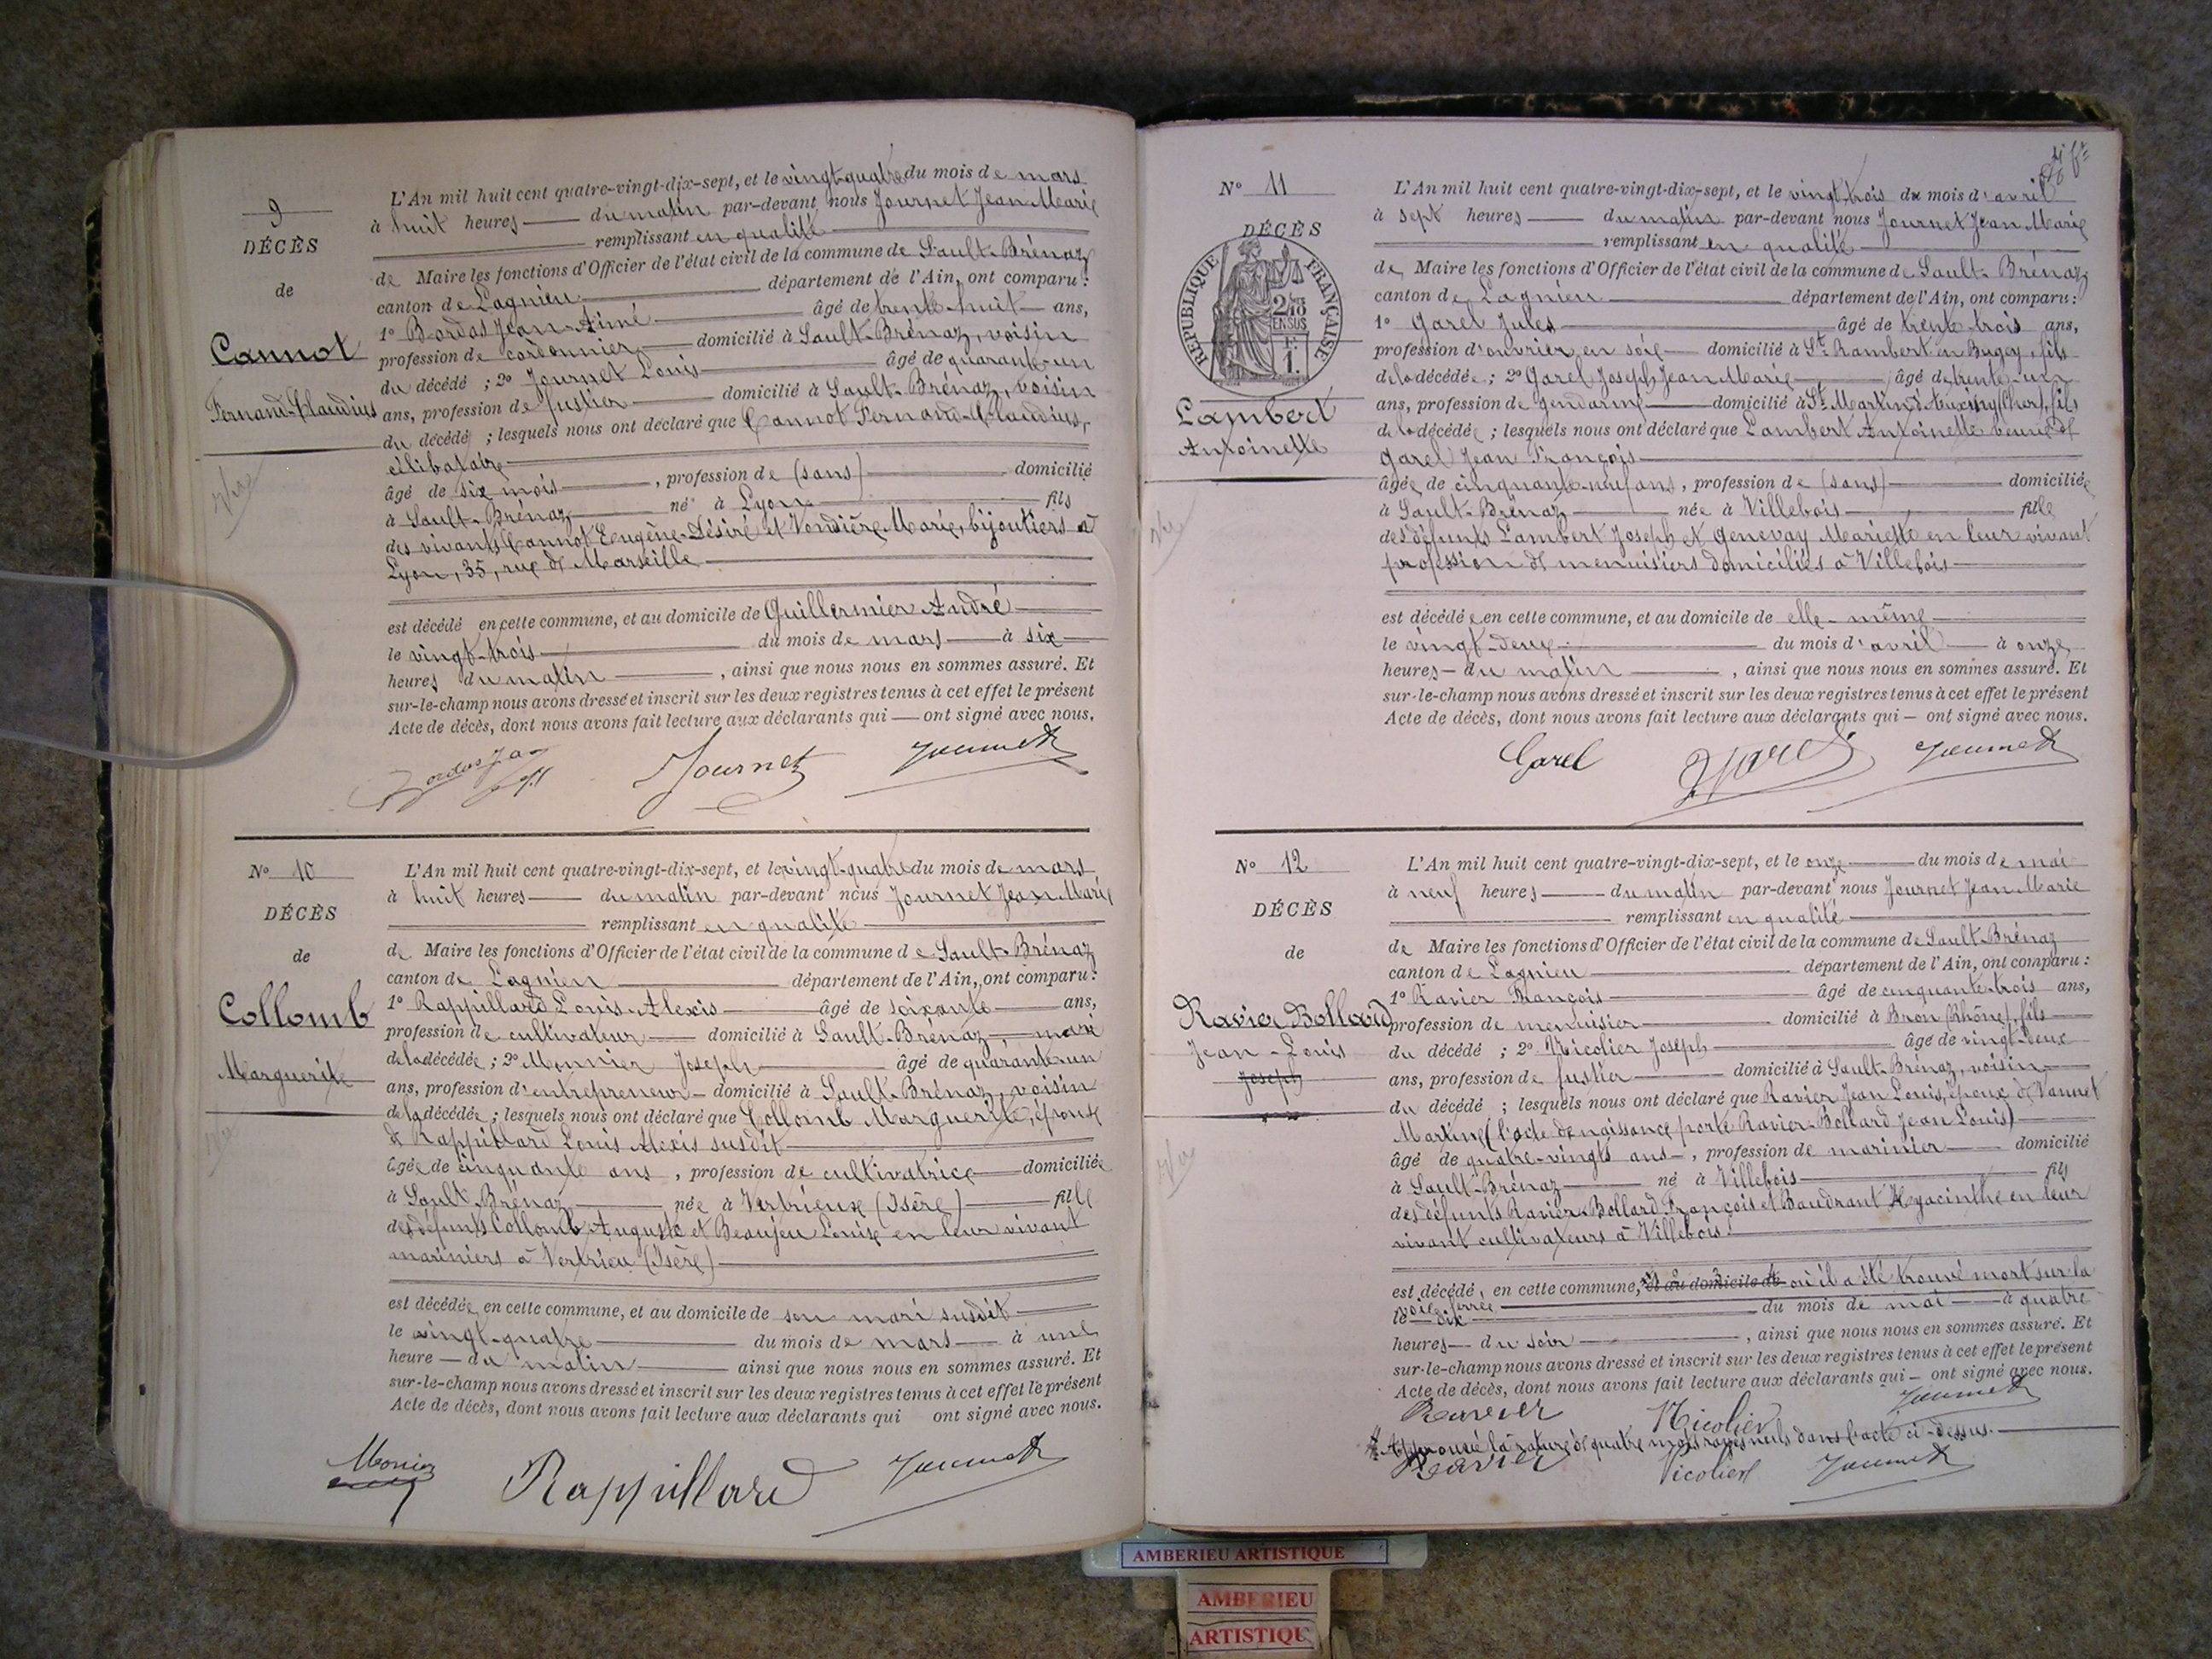 9
DÉCÈS
de
Cannot
Fernand-Claudius
L'An mil huit cent quatre-vingt-dix-sept, et le vingt-quatre du mois de mars
à huit heures du matin par-devant nous Journet Jean Marie
remplissant en qualité
de Maire les fonctions d'Officier de l'état civil de la commune de Sault-Brénaz
canton de Lagnieu département de l'Ain, ont comparu :
1° Bordas Jean-Aimé âgé de trente-huit ans,
profession de cordonnier domicilié à Sault-Brénaz, voisin
du décédé ; 2° Journet Louis âgé de quarante-un
ans, profession de fustier domicilié à Sault-Brénaz, voisin
du décédé ; lesquels nous ont déclaré que Cannot Fernand-Claudius,
célibataire
âgé de six mois, profession de (sans) domicilié
à Sault-Brénaz né à Lyon fils
des vivants Cannot Eugène-Désiré et Vondière Marie, bijoutiers à
Lyon, 35, rue de Marseille
est décédé en cette commune, et au domicile de Guillermier André
le vingt-trois du mois de mars à six
heures du matin, ainsi que nous nous en sommes assuré. Et
sur-le-champ nous avons dressé et inscrit sur les deux registres tenus à cet effet le présent
Acte de décès, dont nous avons fait lecture aux déclarants qui ont signé avec nous.
Journet Journet
N° 10
DÉCÈS
de
Collomb
Marguerite
L'An mil huit cent quatre-vingt-dix-sept, et le vingt-quatre du mois de mars
à huit heures du matin par-devant nous Journet Jean Marie
remplissant en qualité
de Maire les fonctions d'Officier de l'état civil de la commune de Sault-Brénaz
canton de Lagnieu département de l'Ain, ont comparu :
1° Rappillard Louis-Alexis âgé de soixante ans,
profession de cultivateur domicilié à Sault-Brénaz, mari
de la décédée ; 2° Monnier Joseph âgé de quarante-un
ans, profession d'entrepreneur domicilié à Sault-Brénaz, voisin
de la décédée ; lesquels nous ont déclaré que Collomb Marguerite, épouse
de Rappillard Louis Alexis susdit
âgée de cinquante ans, profession de cultivatrice domiciliée
à Sault-Brénaz née à Vertrieux (Isère) fille
des défunts Collomb Auguste et Beaujeu Louise en leur vivant
mariniers à Vertrieu (Isère)
est décédée en cette commune, et au domicile de son mari susdit
le vingt-quatre du mois de mars à une
heure du matin ainsi que nous nous en sommes assuré. Et
sur-le-champ nous avons dressé et inscrit sur les deux registres tenus à cet effet le présent
Acte de décès, dont nous avons fait lecture aux déclarants qui ont signé avec nous.
Monier Rappillard Journet
N° 11
DÉCÈS
RÉPUBLIQUE FRANÇAISE
2/10
EN SUS
1F
Lambert
Antoinette
L'An mil huit cent quatre-vingt-dix-sept, et le vingt trois du mois d'avril
à sept heures du matin par-devant nous Journet Jean Marie
remplissant en qualité
de Maire les fonctions d'Officier de l'état civil de la commune de Sault-Brénaz
canton de Lagnieu département de l'Ain, ont comparu :
1° Garel Jules âgé de trente-trois ans,
profession d'ouvrier en soie domicilié à St Rambert en Bugey, fils
de la décédée ; 2° Garel Joseph Jean Marie âgé de trente-un
ans, profession de gendarme domicilié à St Martin d'Auxigny (Cher), fils
de la décédée ; lesquels nous ont déclaré que Lambert Antoinette veuve de
Garel Jean François
âgée de cinquante-neuf ans, profession de (sans) domiciliée
à Sault-Brénaz née à Villebois fille
des défunts Lambert Joseph et Genevay Mariette en leur vivant
profession de menuisiers domiciliés à Villebois
est décédée en cette commune, et au domicile de elle-même
le vingt-deux du mois d'avril à onze
heures du matin, ainsi que nous nous en sommes assuré. Et
sur-le-champ nous avons dressé et inscrit sur les deux registres tenus à cet effet le présent
Acte de décès, dont nous avons fait lecture aux déclarants qui ont signé avec nous.
Garel JGarel Journet
N° 12
DÉCÈS
de
Ravier Bollard
Jean-Louis
Joseph
L'An mil huit cent quatre-vingt-dix-sept, et le onze du mois de mai
à neuf heures du matin par-devant nous Journet Jean Marie
remplissant en qualité
de Maire les fonctions d'Officier de l'état civil de la commune de Sault-Brénaz
canton de Lagnieu département de l'Ain, ont comparu :
1° Ravier François âgé de cinquante-trois ans,
profession de menuisier domicilié à Bron (Rhône), fils
du décédé ; 2° Nicolier Joseph âgé de vingt-deux
ans, profession de fustier domicilié à Sault-Brénaz, voisin
du décédé ; lesquels nous ont déclaré que Ravier Jean Louis, époux de Vannet
Martine (l'acte de naissance porte Ravier-Bollard Jean Louis)
âgé de quatre-vingts ans, profession de marinier domicilié
à Sault-Brénaz né à Villebois fils
des défunts Ravier-Bollard François et Baudrant Hyacinthe en leur
vivant cultivateurs à Villebois.
est décédé, en cette commune, et au domicile de où il a été trouvé mort sur la
voie ferrée
le dix du mois de mai à quatre
heures du soir, ainsi que nous nous en sommes assuré. Et
sur-le-champ nous avons dressé et inscrit sur les deux registres tenus à cet effet le présent
Acte de décès, dont nous avons fait lecture aux déclarants qui ont signé avec nous.
Ravier Nicolier Journet
Approuvé la rature de quatre mots rayés nuls dans l'acte ci-dessus.
Ravier Nicolier Journet
AMBERIEU ARTISTIQUE
AMBERIEU
ARTISTIQUE